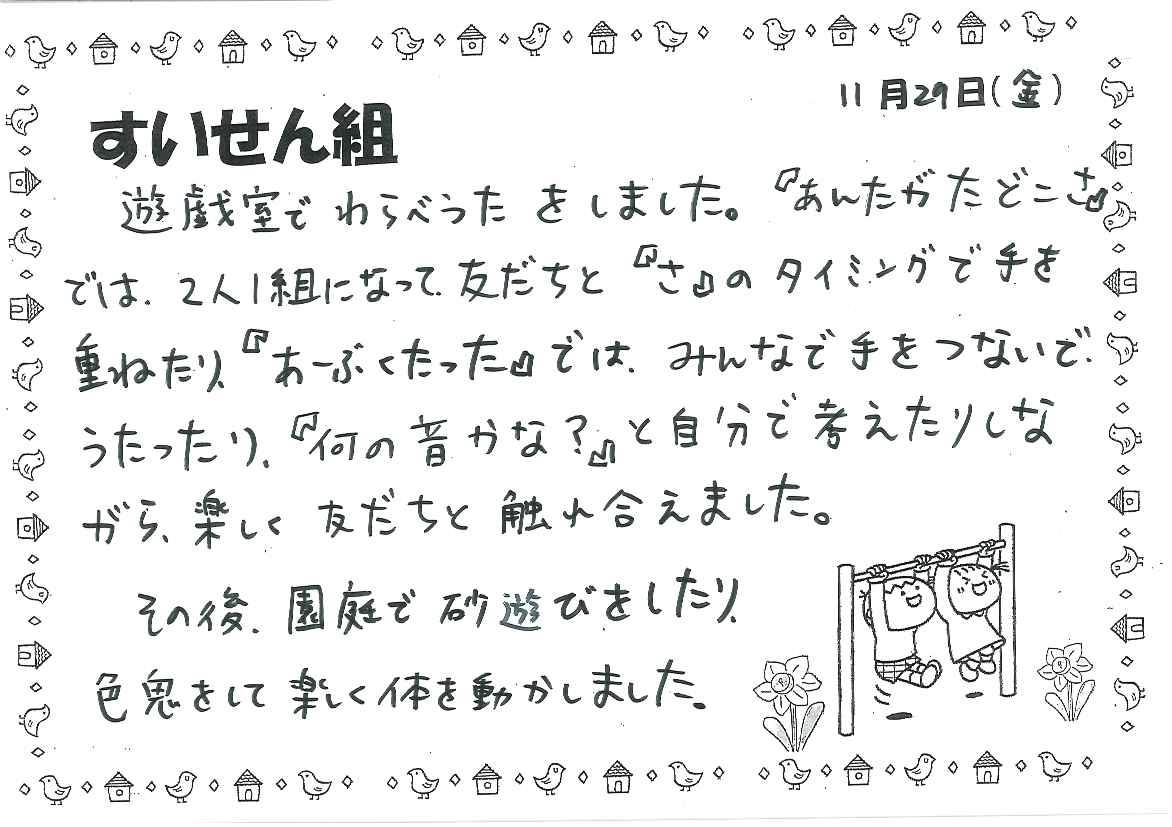 11月29日(金)
すいせん組
遊戯室でわらべうたをしました。『あんたがたどこさ』
では、2人1組になって、友だちと『さ』のタイミングで手を
重ねたり、『あーぶくたった』では、みんなで手をつないで、
うたったり、『何の音かな?』と自分で考えたりしな
がら、楽しく友だちと触れ合えました。
その後、園庭で砂遊びをしたり、
色鬼をして楽しく体を動かしました。